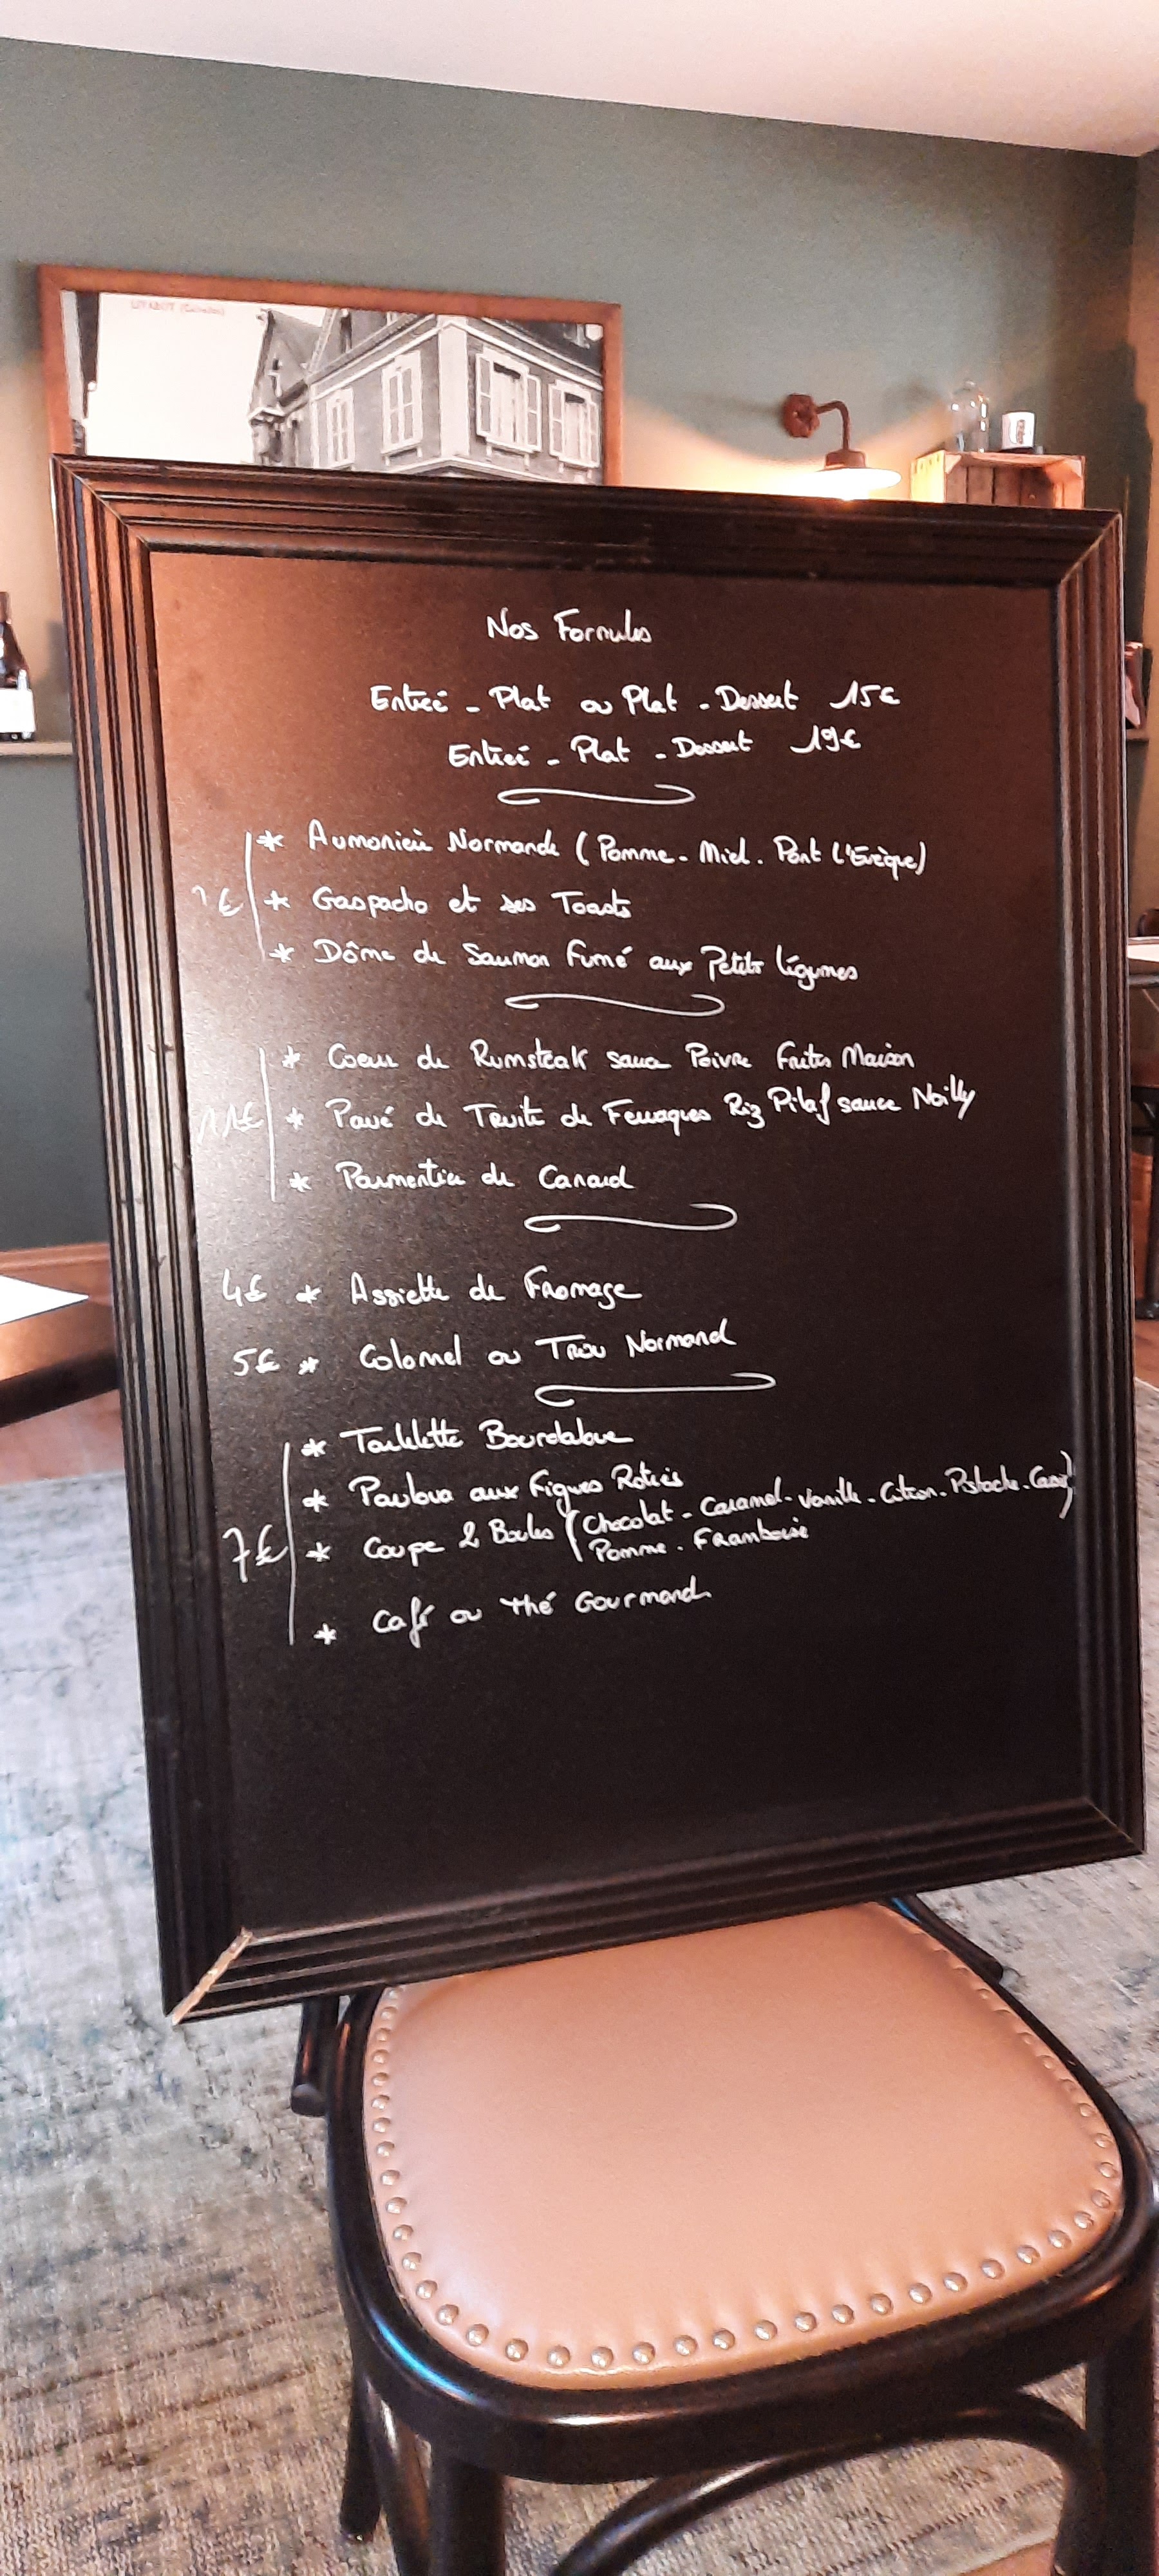 LIVAROT (Calvados)
Nos Formules
Entrée - Plat ou Plat - Dessert 15€
Entrée - Plat - Dessert 19€
* Aumonière Normande (Pomme - Miel - Pont l'Evèque)
7€ * Gaspacho et ses Toasts
* Dôme de Saumon Fumé aux Petits légumes
* Coeur de Rumsteak sauce Poivre Frites Maison
11€ * Pavé de Truite de Ferraques Riz Pilaf sauce Noilly
* Parmentier de Canard
4€ * Assiette de Fromage
5€ * Colomel ou Trou Normand
* Tartelette Bourdaloue
* Pavlova aux Figues Roties
7€ * Coupe 2 Boules (Chocolat - Caramel - Vanille - Citron - Pistache - Cassis)
Pomme - Framboise
* Café ou thé Gourmand